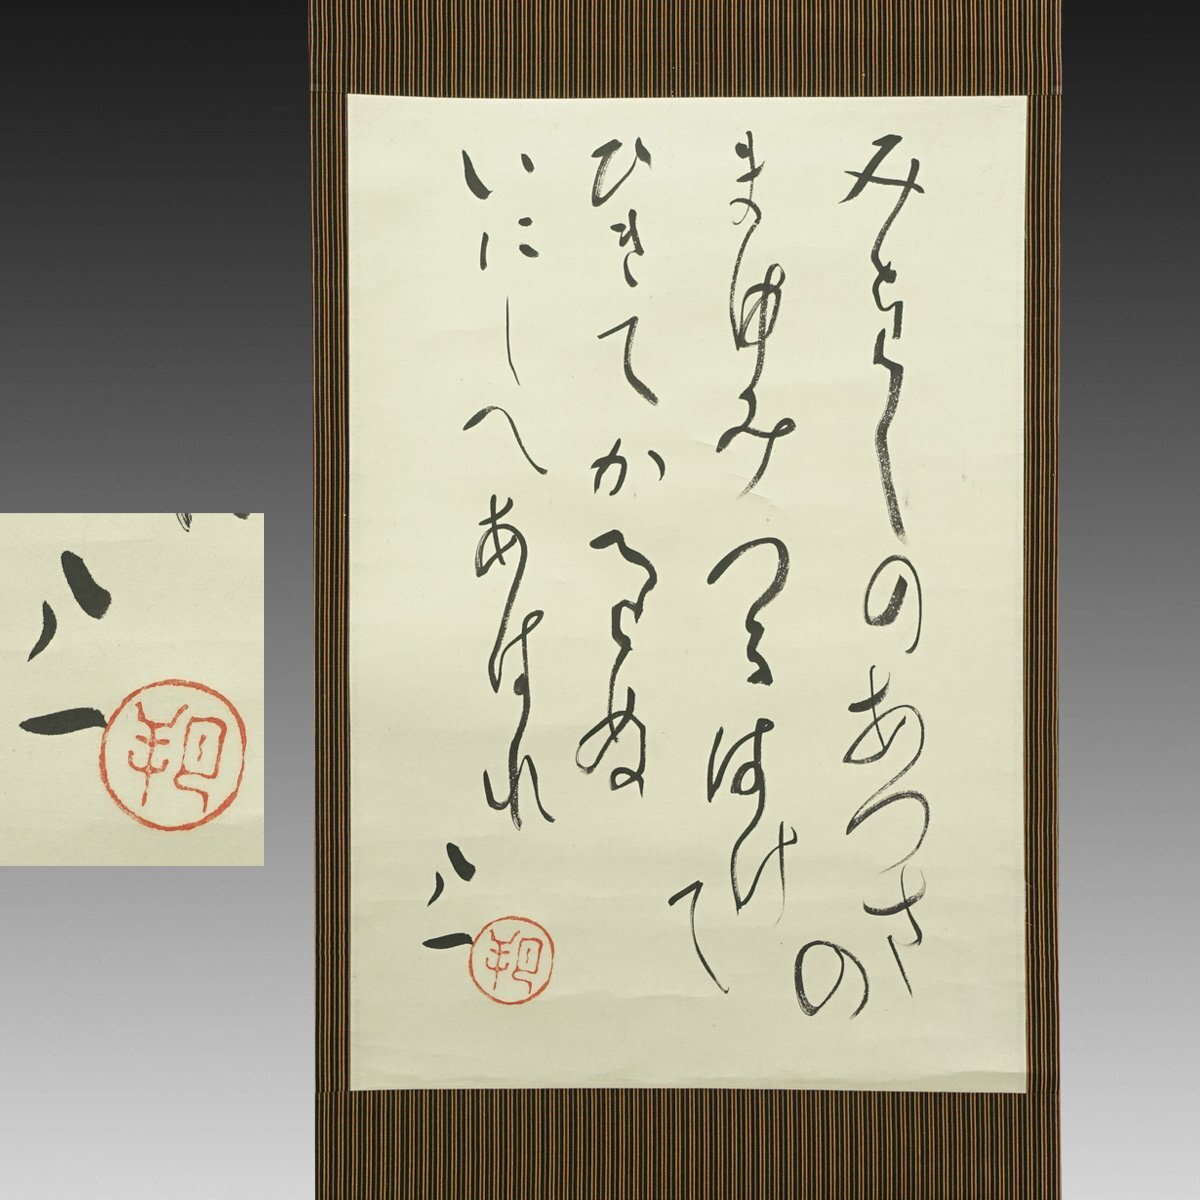 みとらしのあつさの
まゆみつるはけて
ひきてかへらぬ
いにしへあはれ
八一
八一